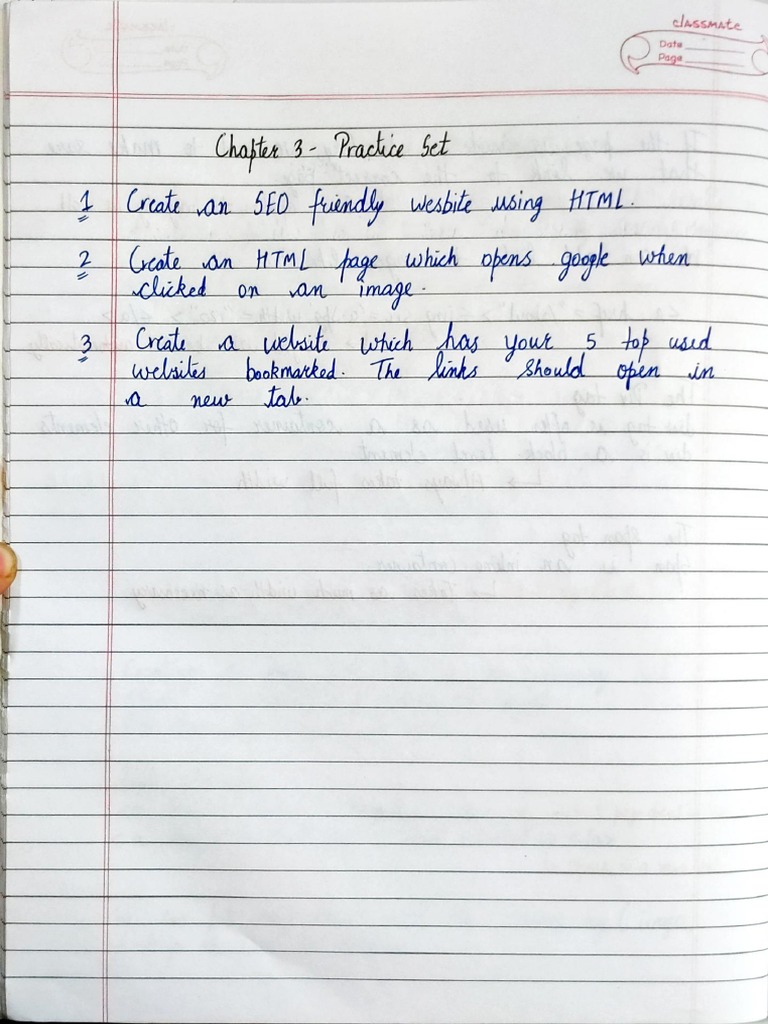 classmate
Date
Page
Chapter 3 - Practice Set
1 Create an SEO friendly wesbite using HTML.
2 Create an HTML page which opens google when
clicked on an image.
3 Create a website which has your 5 top used
websites bookmarked. The links should open in
a new tab.